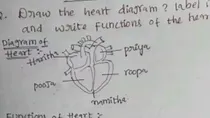 2. Draw the heart diagram ? label i
and write functions of the hear
Diagram of
Heart :-
Haritha
priya
pooja
roopa
namitha
Function of Heart :-